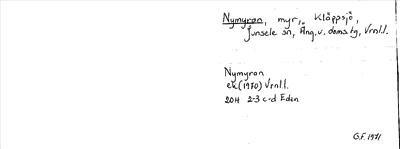 Nymyran, myr, Kläppsjö,
Junsele sn, Äng.v. doms.tg, Vrnl.l.
Nymyran
ek (1970) Vrnl.l.
20H 2-3 c-d Eden
G.F. 1971